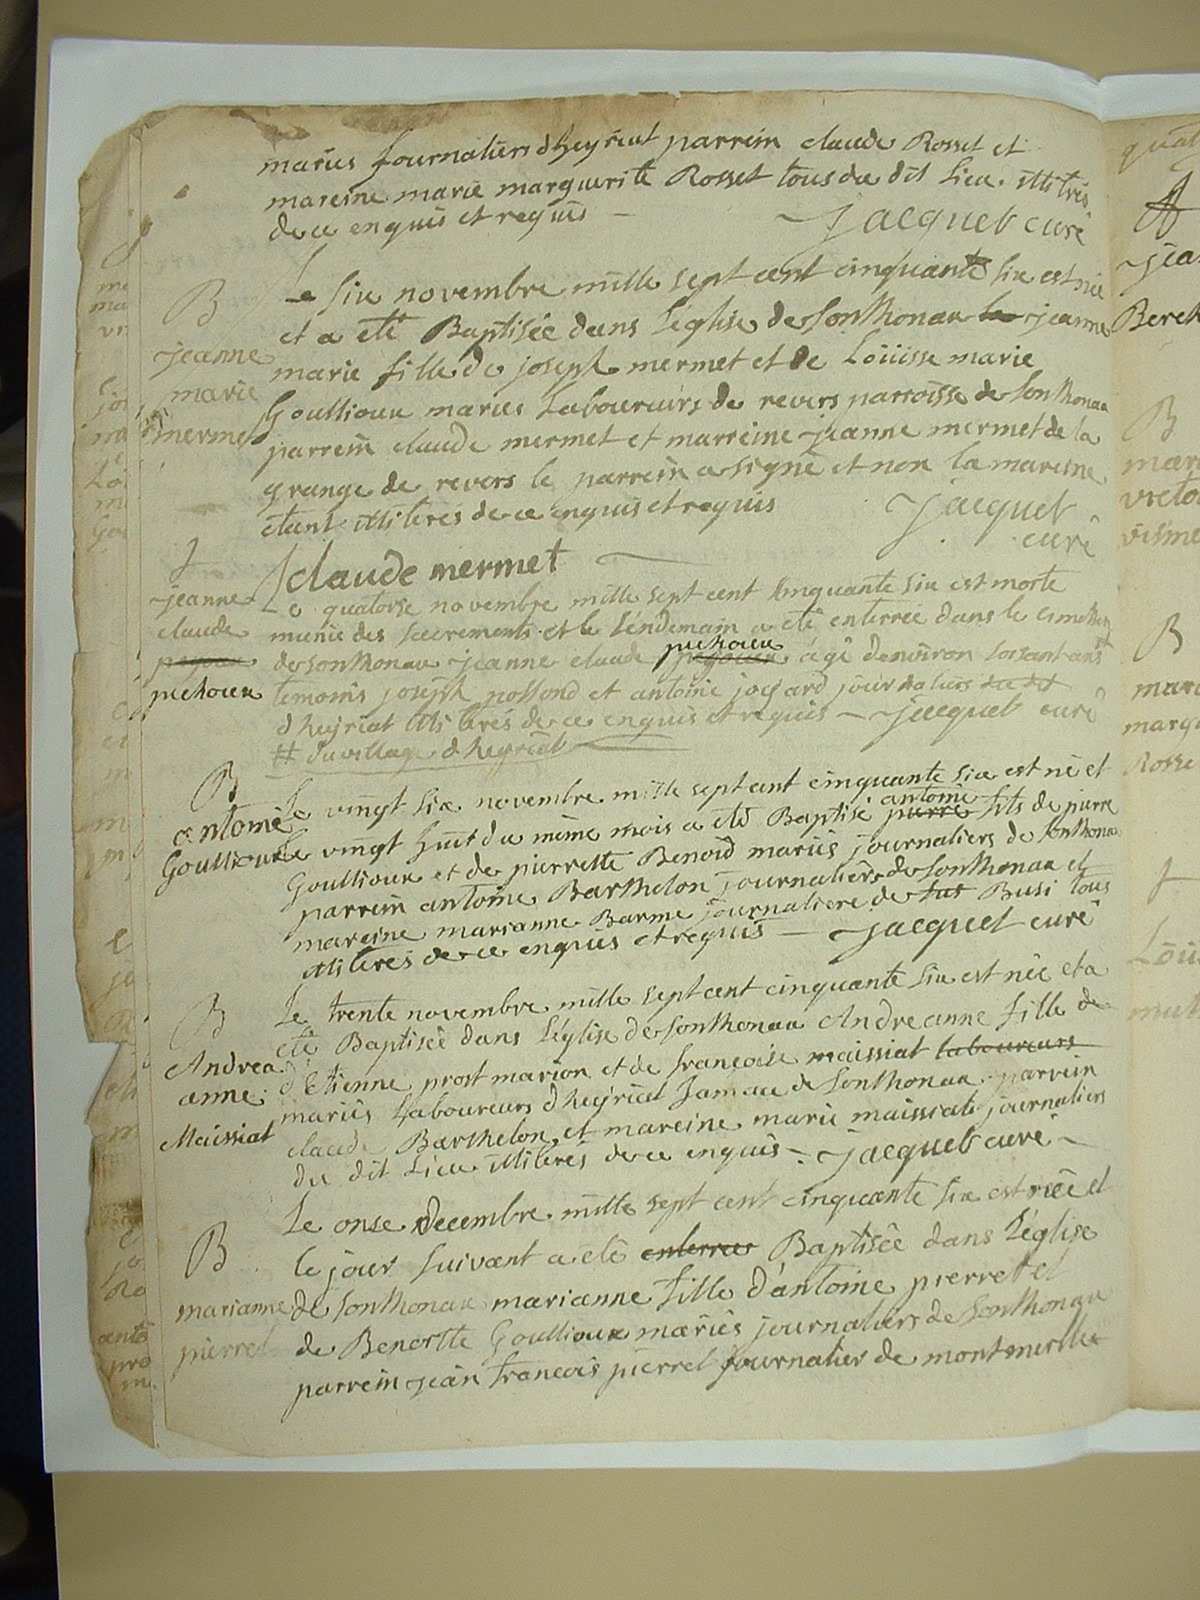 mariés journaliers d heyriat parrein claude Rosset et
mareine marie marguerite Rosset tous du dit Lieu illitérés
de ce enquis et requis — Jacquet curé
B
jeanne
marie
mermet
Le six novembre mille sept cent cinquante six est née
et a eté Baptisée dans Léglise de Sonthonax jeanne
marie fille de joseph mermet et de Loüisse marie
Goullioux mariés Laboureurs de revers parroisse de Sonthonax
parrein claude mermet et marreine jeanne mermet de la
grange de revers le parrein a signé et non la mareine
etant illiteres de ce enquis et requis Jacquet
curé
claude mermet
†
jeanne
claude
pichoux
Le quatorse novembre mille sept cent cinquante six est morte
munie des sacrements et le Lendemain a eté enterrée dans le
de Sonthonax jeanne claude pichoux agé denviron soisant ans
temoins joseph possond et antoine jogard journaliers
d heyriat illiterés de ce enquis et requis — Jacquet curé
# du village d heyriat
B
antoine
Goullioux
Le vingt six novembre mille sept cent cinquante six est né et
le vingt huit du même mois a eté Baptisé antoine fils de pierre
Goullioux et de pierrette Benoid mariés journaliers de Sonthonax
parrein antoine Barthelon journaliers de Sonthonax et
mareine marianne Barme journaliere de Busi tous
illiterés de ce enquis et requis — Jacquet curé
B
Andrea
anne
Maissiat
Le trente novembre mille sept cent cinquante six est née et a
eté Baptisée dans Léglise de Sonthonax Andreanne fille de
d'Etienne prost marion et de francoise maissiat laboureurs
mariés Laboureurs d heyriat Jameau de Sonthonax parrein
claude Barthelon et mareine marie maissiat journaliers
du dit Lieu illiterés de ce enquis - Jacquet curé —
B
marianne
pierret
Le onse decembre mille sept cent cinquante six est née et
le jour suivant a eté enterree Baptisée dans Léglise
de Sonthonax marianne fille d'antoine pierret et
de Benoitte Goullioux mariés journaliers de Sonthonax
parrein jean francois pierret journalier de montmerlle